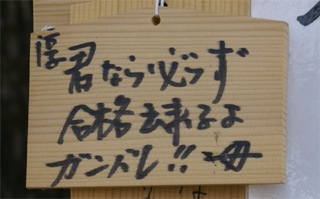 淳君なら必らず
合格出来るよ
ガンバレ!! 母